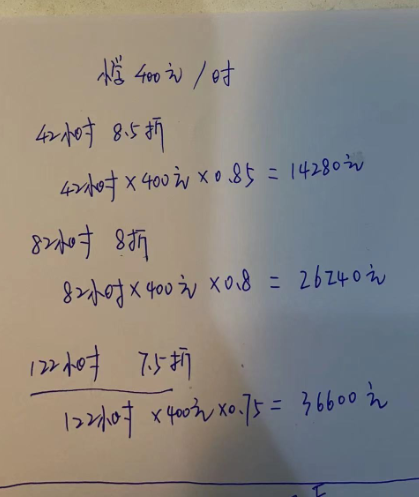 小学400元/时
42小时 8.5折
42小时×400元×0.85=14280元
82小时 8折
82小时×400元×0.8=26240元
122小时 7.5折
122小时×400元×0.75=36600元